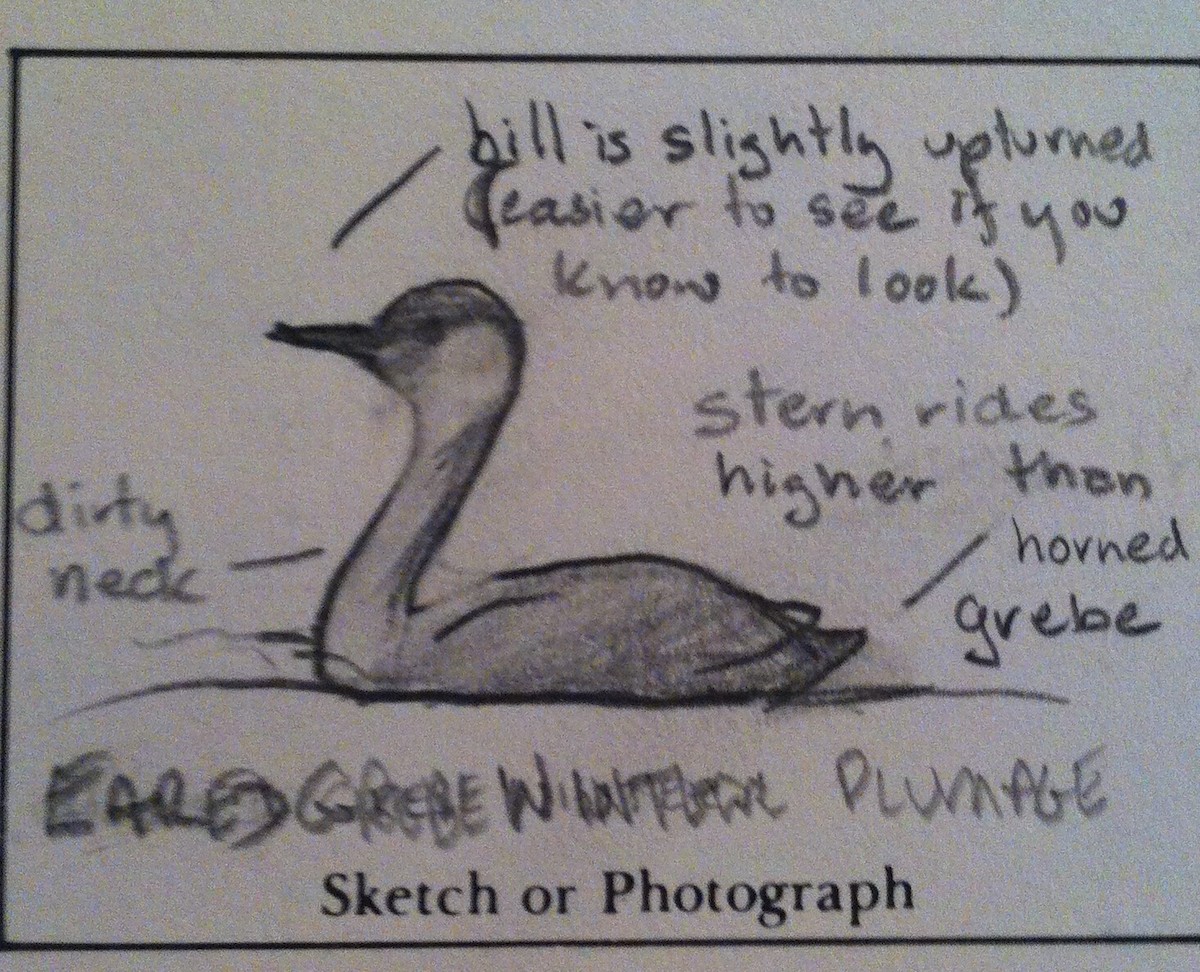 bill is slightly upturned
(easier to see if you
know to look)
stern rides
higher than
horned
grebe
dirty
neck
EARED GREBE WINTER PLUMAGE
Sketch or Photograph